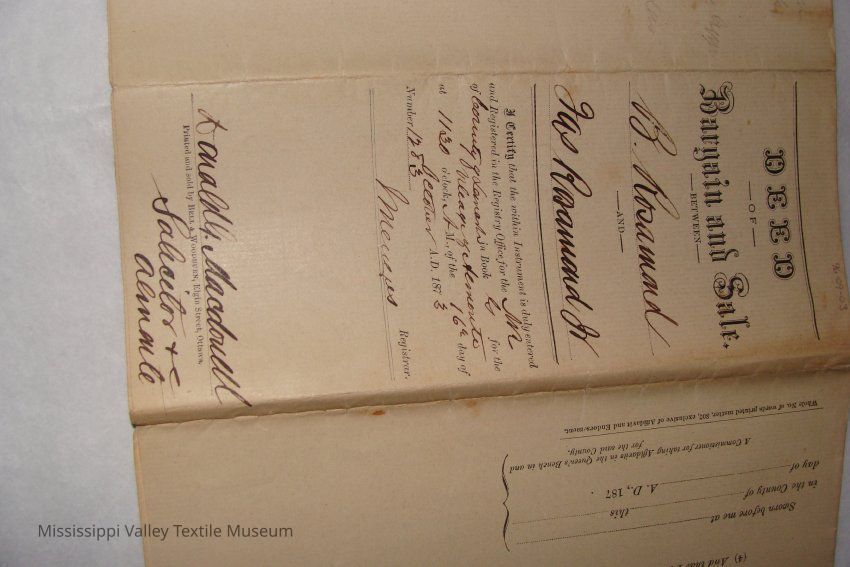 DEED
—OF—
Bargain and Sale.
—BETWEEN—
B. Rosamond
—AND—
Jas Rosamond Jr
I Certify that the within Instrument is duly entered
and Registered in the Registry Office for the
of County of Lanark in Book for the
Village of Almonte
at 1130 o'clock, A M., of the 16th day of
October A.D. 1873
Number 1283
Registrar.
Donald G. Macdonell
Printed and sold by BELL & WOODBURN, Elgin Street, Ottawa.
Solicitor &c
Almonte
Whole No. of words printed matter, 802, exclusive of Affidavit and Endorsement.
Sworn before me at
in the County of this
day of A. D., 187 .
A Commissioner for taking Affidavits in the Queen's Bench in and
for the said County.
(4) And that
Mississippi Valley Textile Museum